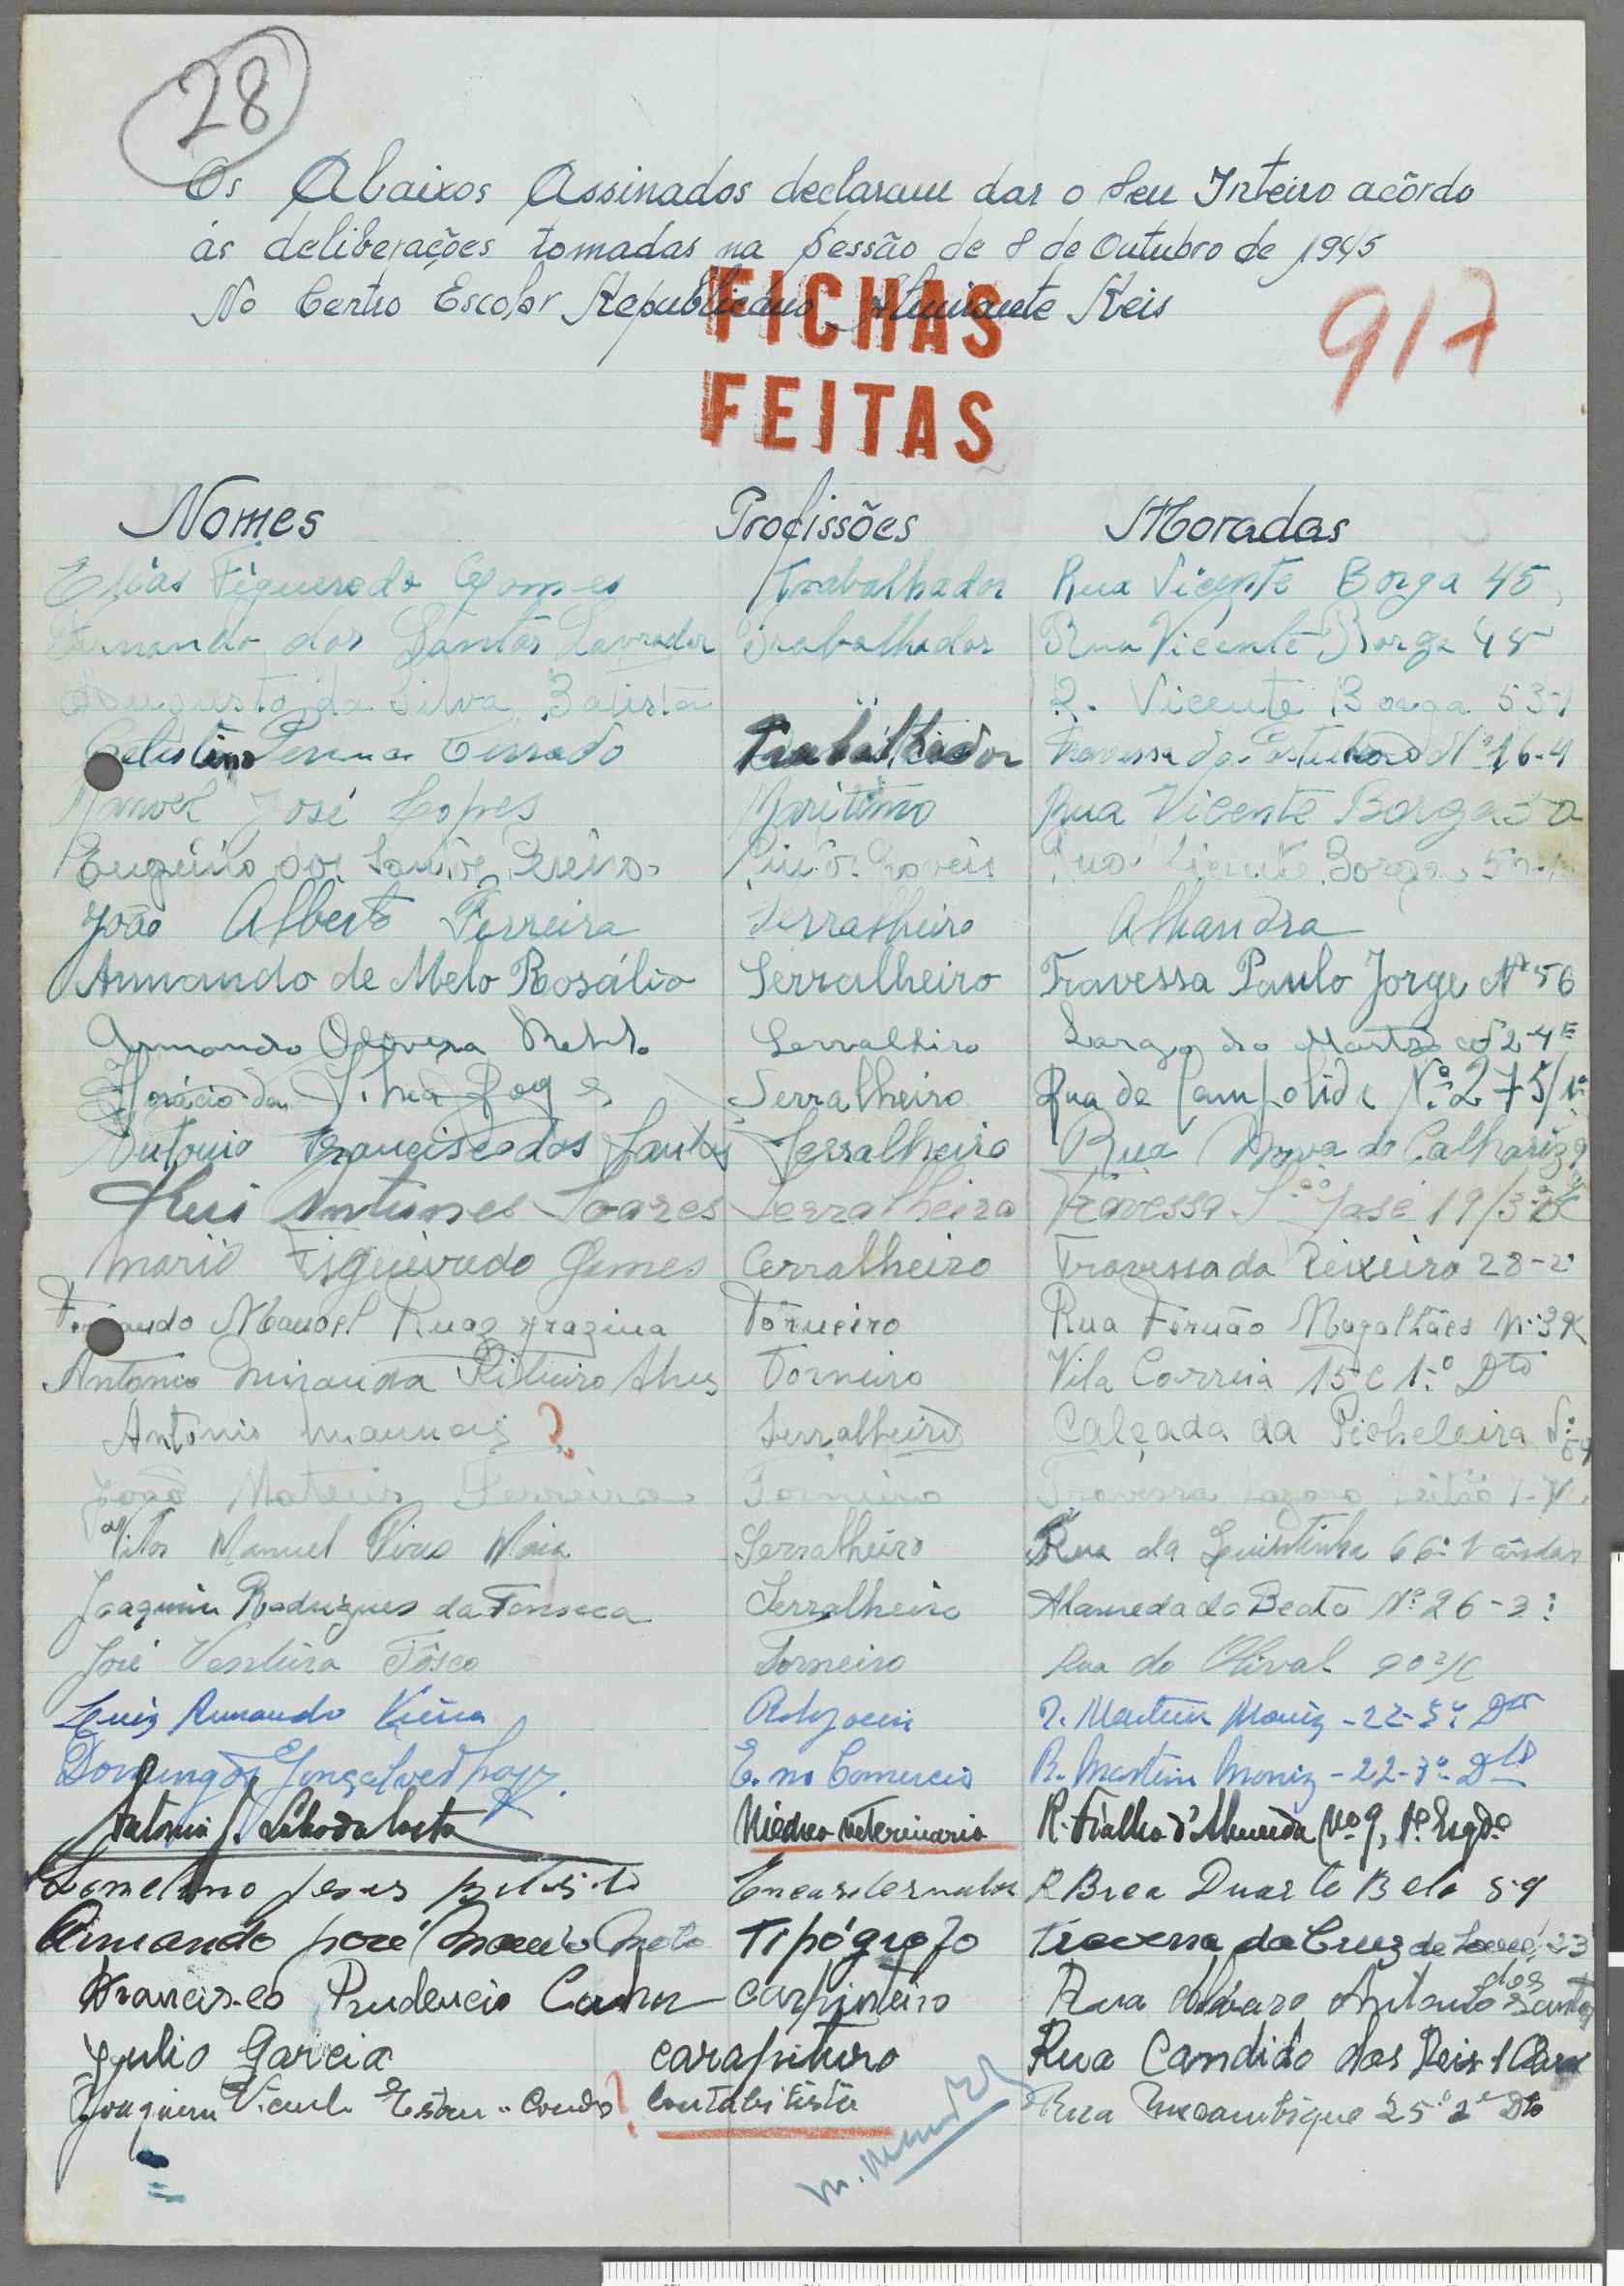 28
Os Abaixos Assinados declaram dar o seu Inteiro acôrdo
ás deliberações tomadas na sessão de 8 de Outubro de 1945
No Centro Escolar Republicano Almirante Reis
917
FICHAS
FEITAS
Nomes Profissões Moradas
Elias Figueredo Gomes Trabalhador Rua Vicente Borga 45
Fernando dos Santos Lavrador Trabalhador Rua Vicente Borga 45
Augusto da Silva Batista " R. Vicente Borga 53-1
Celestino Trabalhador Travessa da Nº 16-4
Manoel José Lopes Maritimo Rua Vicente Borga
Eugénio dos Santos Rua Vicente Borga
João Alberto Ferreira Serralheiro Alhandra
Armando de Melo Rosália Serralheiro Travessa Paulo Jorge Nº 56
Armando Oliveira Serralhiro Largo do
Horácio da Silva Serralheiro Rua de Campolide Nº 275/1º
Antonio Francisco dos Santos Serralheiro Rua Nova do Calhariz 9
Rui Antunes Soares Serralheiro Travessa S. José 19/3º
Mario Figueiredo Gomes Cerralheiro Travessa do Teixeira 28-2º
Manoel Torneiro Rua Fernão Magalhães
Antonio Miranda Ribeiro Alves Torneiro Vila Correia 15 C 1º Dto
Antonio ? Serralheiro Calçada da Picheleira Nº
João Mateus Ferreira Torneiro Travessa Lazaro Leitão
Vitor Manuel Pires Maia Serralheiro Rua da Quintinha 66 1º andar
Joaquim Rodrigues da Fonseca Serralheiro Alameda do Beato Nº 26-3º
José Ventura Tôsco Torneiro Rua do Olival 90
Luiz Armando Vieira R. Martim Moniz-22-3º Dto
Domingos Gonçalves E. no Comercio R. Martim Moniz-22-3º Dto
Antonio J. Lobo da Costa Médico veterinario R. Fialho d'Almeida Nº 9, 1º Esqdo
Jesus Encadernador R Brea Duarte Belo 59
Armando José Mota Tipógrafo Travessa da Cruz de 23
Francisco Prudencio carpinteiro Rua Alvaro Antonio dos Santos
Julio Garcia carapinturo Rua Candido dos Reis
Joaquim Vicente ? Contabilista Rua Moçambique 25 2º Dto
M. Mendes